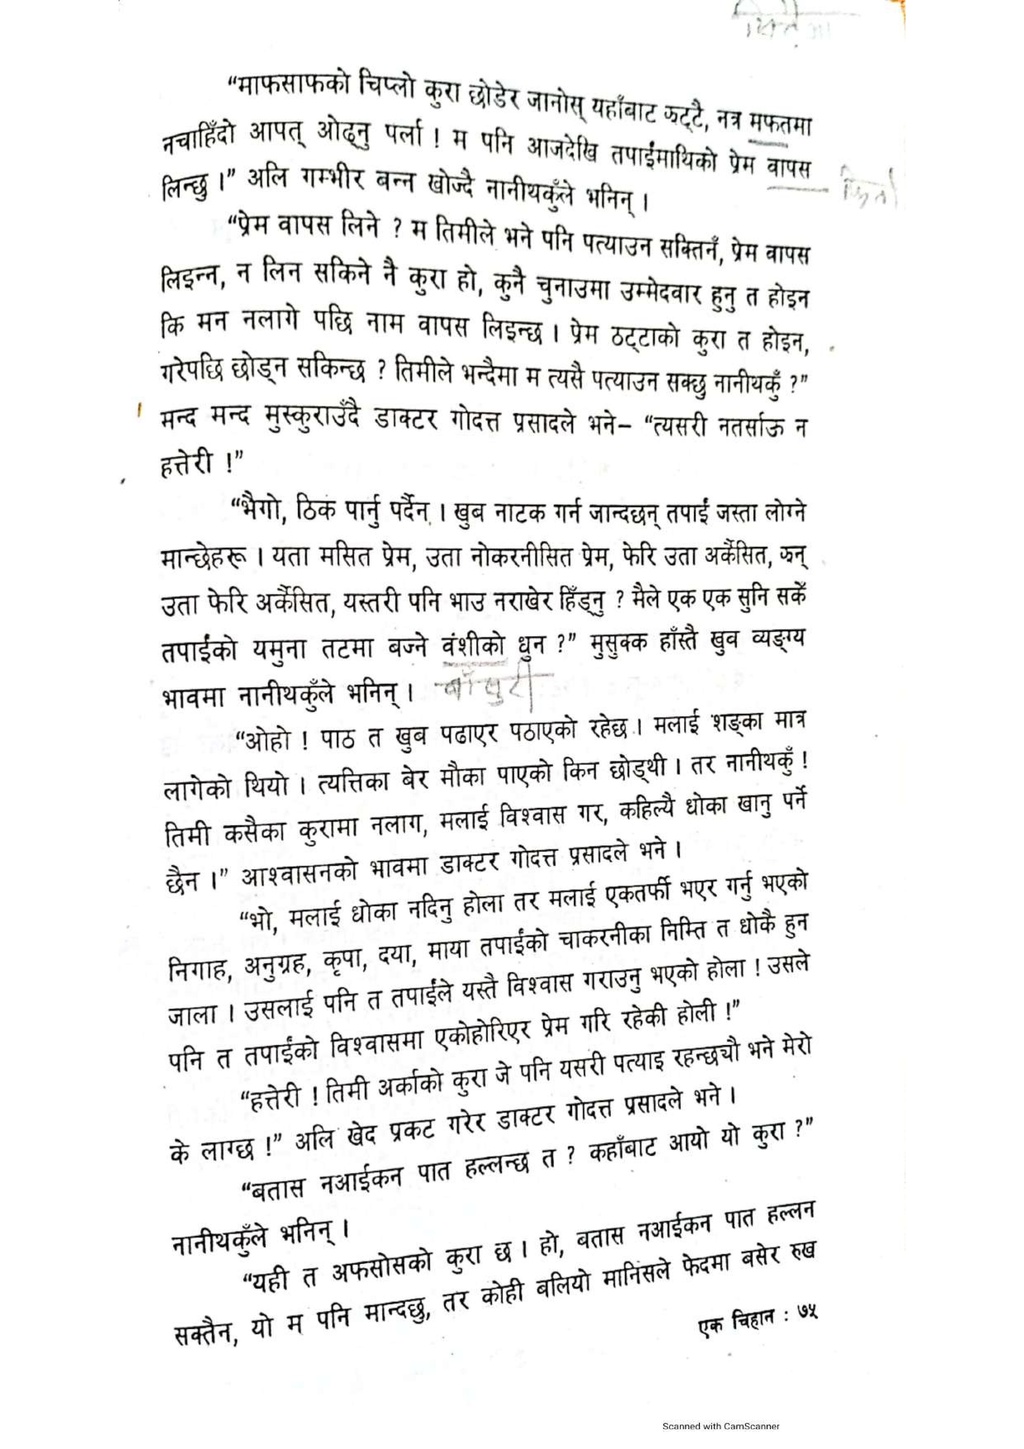 “माफसाफको चिप्लो कुरा छोडेर जानोस् यहाँबाट झट्टै, नत्र मफतमा
नचाहिँदो आपत् ओढ्नु पर्ला ! म पनि आजदेखि तपाईंमाथिको प्रेम वापस
लिन्छु ।” अलि गम्भीर बन्न खोज्दै नानीथकुँले भनिन् ।
“प्रेम वापस लिने ? म तिमीले भने पनि पत्याउन सक्तिनँ, प्रेम वापस
लिइन्न, न लिन सकिने नै कुरा हो, कुनै चुनाउमा उम्मेदवार हुनु त होइन
कि मन नलागे पछि नाम वापस लिइन्छ । प्रेम ठट्टाको कुरा त होइन,
गरेपछि छोड्न सकिन्छ ? तिमीले भन्दैमा म त्यसै पत्याउन सक्छु नानीथकुँ ?”
मन्द मन्द मुस्कुराउँदै डाक्टर गोदत्त प्रसादले भने– “त्यसरी नतर्साऊ न
हत्तेरी !”
“भैगो, ठिक पार्नु पर्दैन । खुब नाटक गर्न जान्दछन् तपाईं जस्ता लोग्ने
मान्छेहरू । यता मसित प्रेम, उता नोकरनीसित प्रेम, फेरि उता अर्कैसित, झन्
उता फेरि अर्कैसित, यस्तरी पनि भाउ नराखेर हिँड्नु ? मैले एक एक सुनि सकेँ
तपाईंको यमुना तटमा बज्ने वंशीको धुन ?” मुसुक्क हाँस्तै खुव व्यङ्ग्य
भावमा नानीथकुँले भनिन् । बाँसुरी
“ओहो ! पाठ त खुब पढाएर पठाएको रहेछ । मलाई शङ्का मात्र
लागेको थियो । त्यत्तिका बेर मौका पाएको किन छोड्थी । तर नानीथकुँ !
तिमी कसैका कुरामा नलाग, मलाई विश्वास गर, कहिल्यै धोका खानु पर्ने
छैन ।” आश्वासनको भावमा डाक्टर गोदत्त प्रसादले भने ।
“भो, मलाई धोका नदिनु होला तर मलाई एकतर्फी भएर गर्नु भएको
निगाह, अनुग्रह, कृपा, दया, माया तपाईंको चाकरनीका निम्ति त धोकै हुन
जाला । उसलाई पनि त तपाईंले यस्तै विश्वास गराउनु भएको होला ! उसले
पनि त तपाईंको विश्वासमा एकोहोरिएर प्रेम गरि रहेकी होली !”
“हत्तेरी ! तिमी अर्काको कुरा जे पनि यसरी पत्याइ रहन्छ्यौ भने मेरो
के लाग्छ !” अलि खेद प्रकट गरेर डाक्टर गोदत्त प्रसादले भने ।
“बतास नआईकन पात हल्लन्छ त ? कहाँबाट आयो यो कुरा ?”
नानीथकुँले भनिन् ।
“यही त अफसोसको कुरा छ । हो, बतास नआईकन पात हल्लन
सक्तैन, यो म पनि मान्दछु, तर कोही बलियो मानिसले फेदमा बसेर रुख
एक चिहान : ७५
Scanned with CamScanner